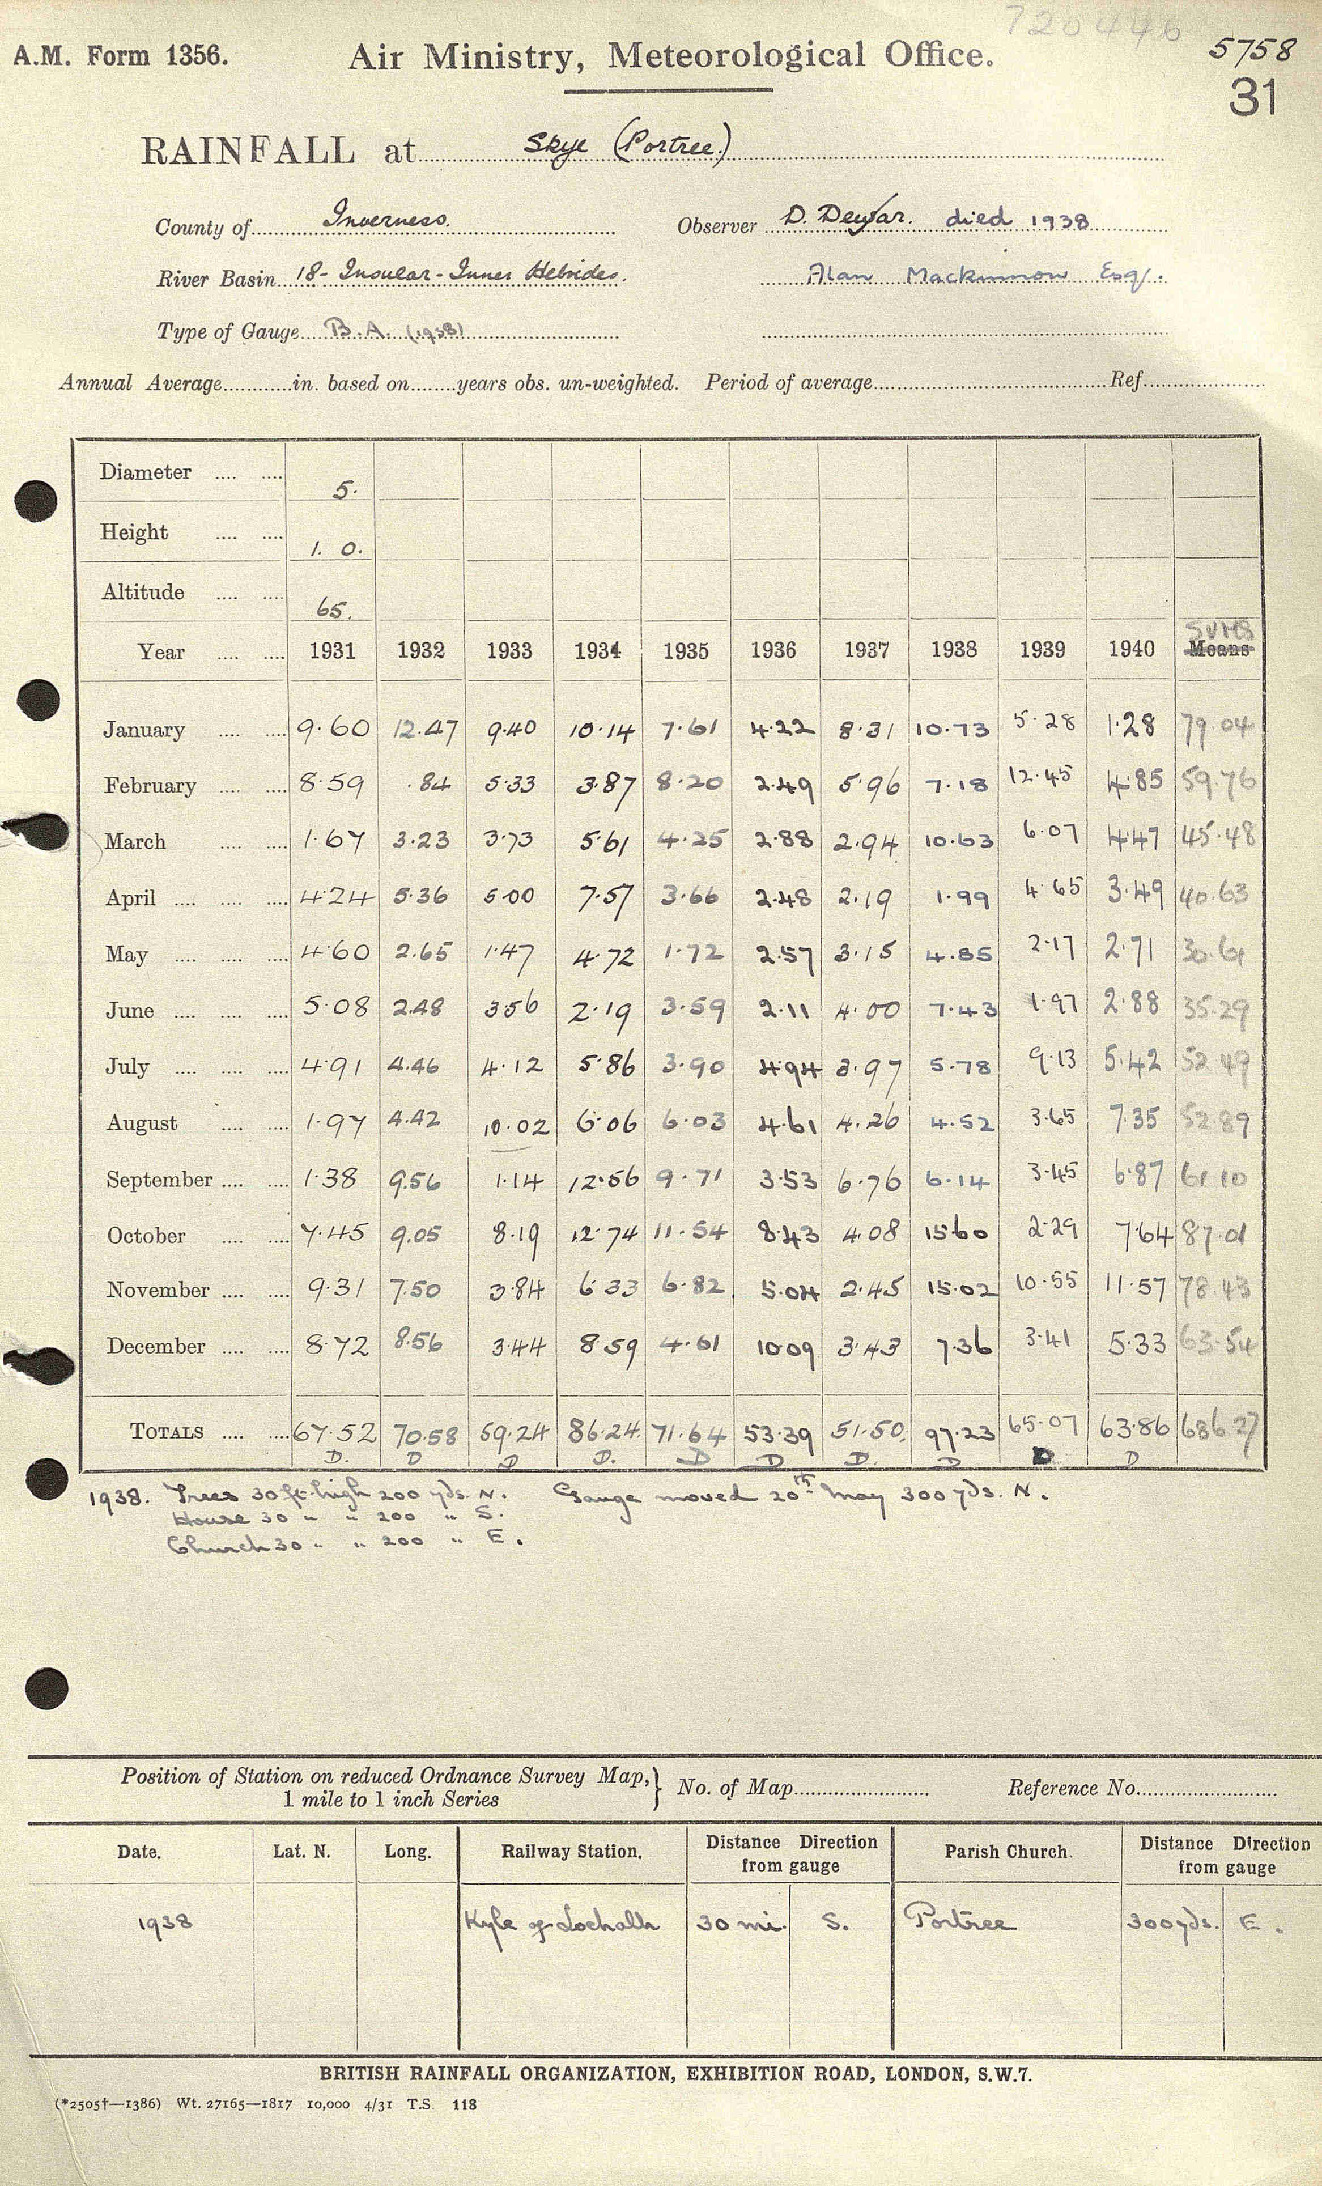 720446
A.M. Form 1356. Air Ministry, Meteorological Office. 5758
31
RAINFALL at Skye (Portree)
County of Inverness. Observer D. Dewar. died 1938
River Basin 18 - Insular - Inner Hebrides. Alan Mackinnon Esq.
Type of Gauge B.A. (1938)
Annual Average in. based on years obs. un-weighted. Period of average Ref
Diameter 5.
Height 1. 0.
Altitude 65.
SUMS
Year 1931 1932 1933 1934 1935 1936 1937 1938 1939 1940 Means
January 9.60 12.47 9.40 10.14 7.61 4.22 8.31 10.73 5.28 1.28 79.04
February 8.59 .84 5.33 3.87 8.20 2.49 5.96 7.18 12.45 4.85 59.76
March 1.67 3.23 3.73 5.61 4.25 2.88 2.94 10.63 6.07 4.47 45.48
April 4.24 5.36 5.00 7.57 3.66 2.48 2.19 1.99 4.65 3.49 40.63
May 4.60 2.65 1.47 4.72 1.72 2.57 3.15 4.85 2.17 2.71 30.61
June 5.08 2.48 3.56 2.19 3.59 2.11 4.00 7.43 1.97 2.88 35.29
July 4.91 4.46 4.12 5.86 3.90 4.94 3.97 5.78 9.13 5.42 52.49
August 1.97 4.42 10.02 6.06 6.03 4.61 4.26 4.52 3.65 7.35 52.89
September 1.38 9.56 1.14 12.56 9.71 3.53 6.76 6.14 3.45 6.87 61.10
October 7.45 9.05 8.19 12.74 11.54 8.43 4.08 15.60 2.29 7.64 87.01
November 9.31 7.50 3.84 6.33 6.82 5.04 2.45 15.02 10.55 11.57 78.43
December 8.72 8.56 3.44 8.59 4.61 10.09 3.43 7.36 3.41 5.33 63.54
TOTALS 67.52 70.58 59.24 86.24 71.64 53.39 51.50 97.23 65.07 63.86 686.27
D. D D D. D D D. D D D
1938. Trees 30 ft. high 200 yds. N. Gauge moved 20th May 300 yds. N.
House 30 " " 200 " S.
Church 30 " " 200 " E.
Position of Station on reduced Ordnance Survey Map, } No. of Map Reference No.
1 mile to 1 inch Series
Date. Lat. N. Long. Railway Station. Distance Direction from gauge Parish Church. Distance Direction from gauge
1938 Kyle of Lochalsh 30 mi. S. Portree 300 yds. E.
BRITISH RAINFALL ORGANIZATION, EXHIBITION ROAD, LONDON, S.W.7.
(*2505†—1386) Wt. 27165—1817 10,000 4/31 T.S. 118